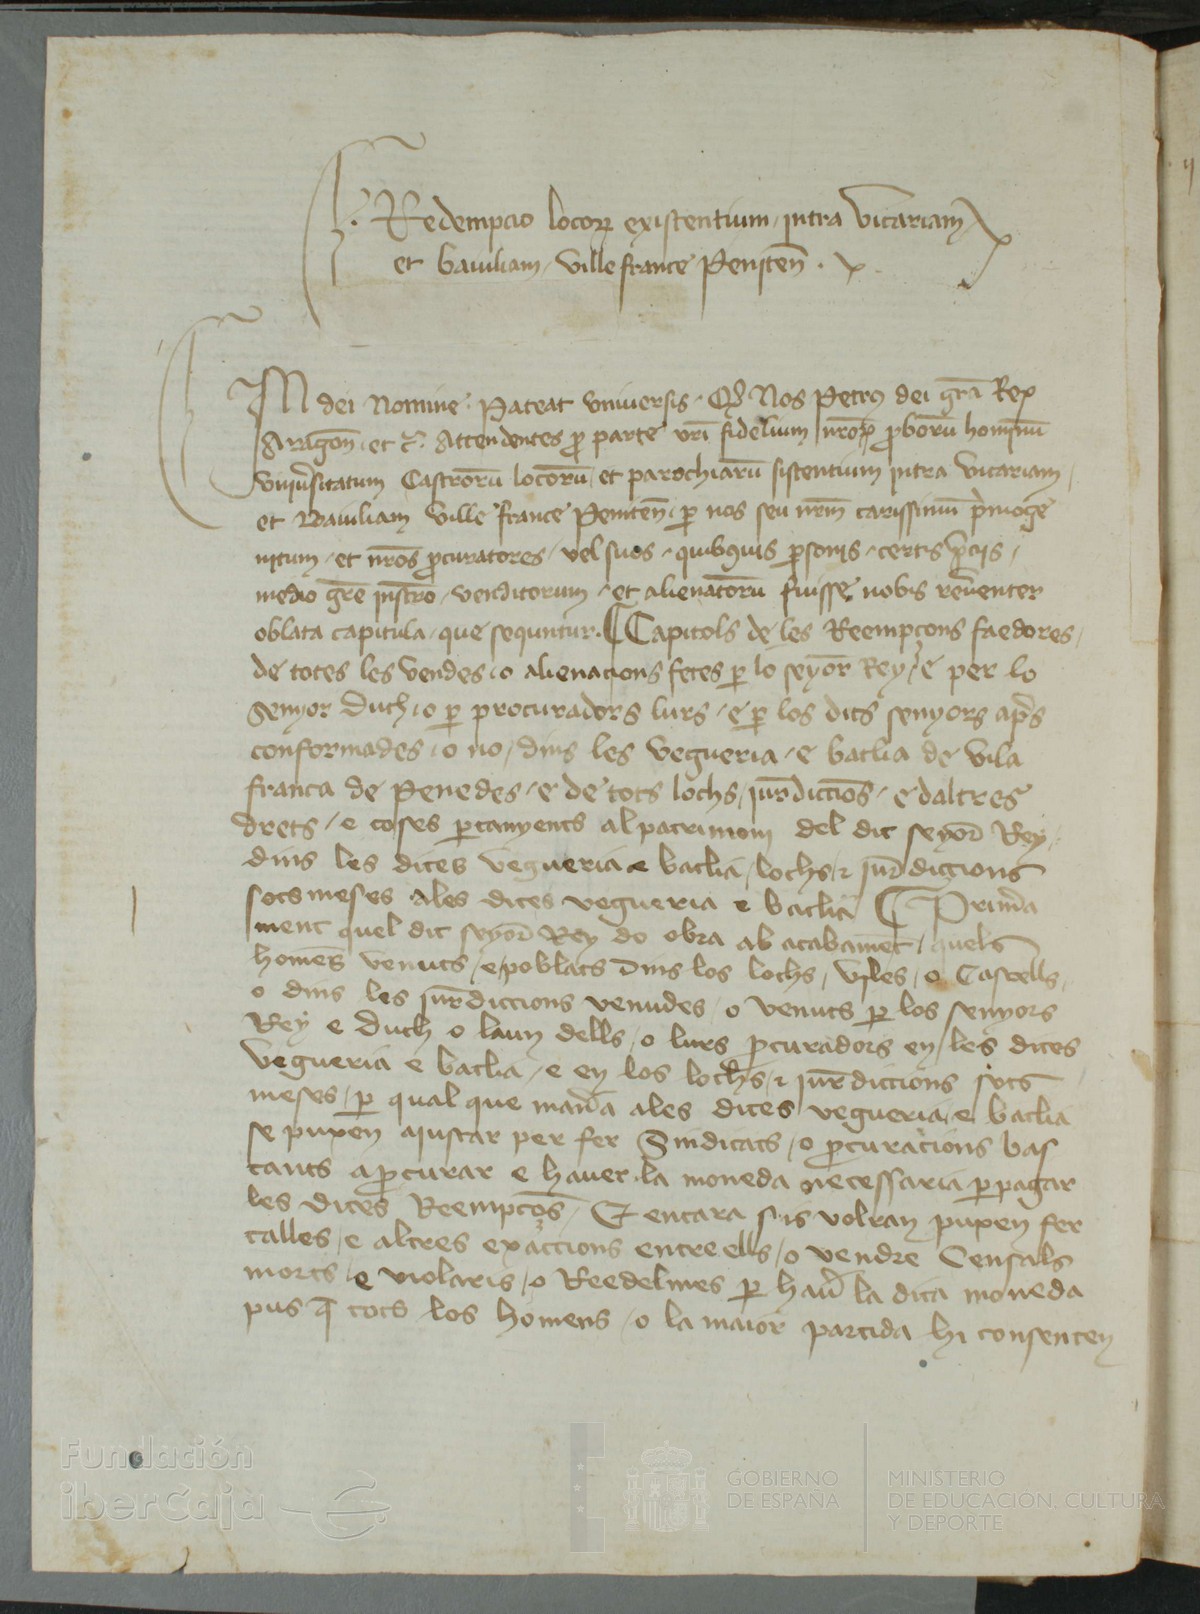 Redempcio locoꝝ existentium intra vicariam
et baiuliam ville france Peniten̄
IN dei Nomine Pateat vniuersis Qd̄ Nos Petrꝰ dei gr̄a Rex
Aragon̄ et c̄ Attendentes ꝓ parte vr̄i fidelium nr̄oꝝ ꝓborū hominū
vniūsitatum Castrorū locorū et parochiarū sistentium intra vicariam
et Baiuliam ville france Peniten̄ ꝑ nos seu nr̄m carissimū p̄moge
nitum et nr̄os ꝓcuratores vel suos quibꝰuis ꝑsonis certis p̄cijs
medio gr̄e instr̄o venditorum et alienatorū fuisse nobis reūenter
oblata capitula que sequntur Capitols de les Reempçons faedores
de totes les vendes o alienacions fetes ꝑ lo seyor̄ Rey e per lo
senyor Duch o ꝑ procuradors lurs e ꝑ los dits senyors ap̄s
confermades o no dins les vegueria e batlia de vila
franca de Penedes e de tots lochs jur̄diccios̄ e daltres
drets e coses ꝑtanyents al patrimoni del dit seyor̄ Rey
dins les dites vegueria e batlia lochs ⁊ jur̄diccions
sotsmeses ales dites vegueria e batlia Primā
ment quel dit seyor̄ Rey do obra ab acabamēt quels
homēs venuts e poblats dins los lochs viles o Castells
o dins les jur̄diccions venudes o venuts ꝑ los senyors
Rey e Duch o laun dells o lurs ꝓcuradors en les dites
vegueria e batlia e en los lochs ⁊ jur̄diccions sots
meses ꝑ qual que man̄a ales dites vegueria e batlia
se puxen aiustar per fer Sindicats o ꝓcuracions bas
tants a ꝓcurar e hauer la moneda necessaria ꝑ pagar
les dites Reempçōs Et encara sis volran puxen fer
talles e altres exaccions entre ells o vendre Censals
morts e violaris o Reedelmes ꝑ hau̅ la dita moneda
pus q̄ tots los homens o la maior partida hi consenten
Fundación
iberCaja
GOBIERNO
DE ESPAÑA
MINISTERIO
DE EDUCACIÓN, CULTURA
Y DEPORTE